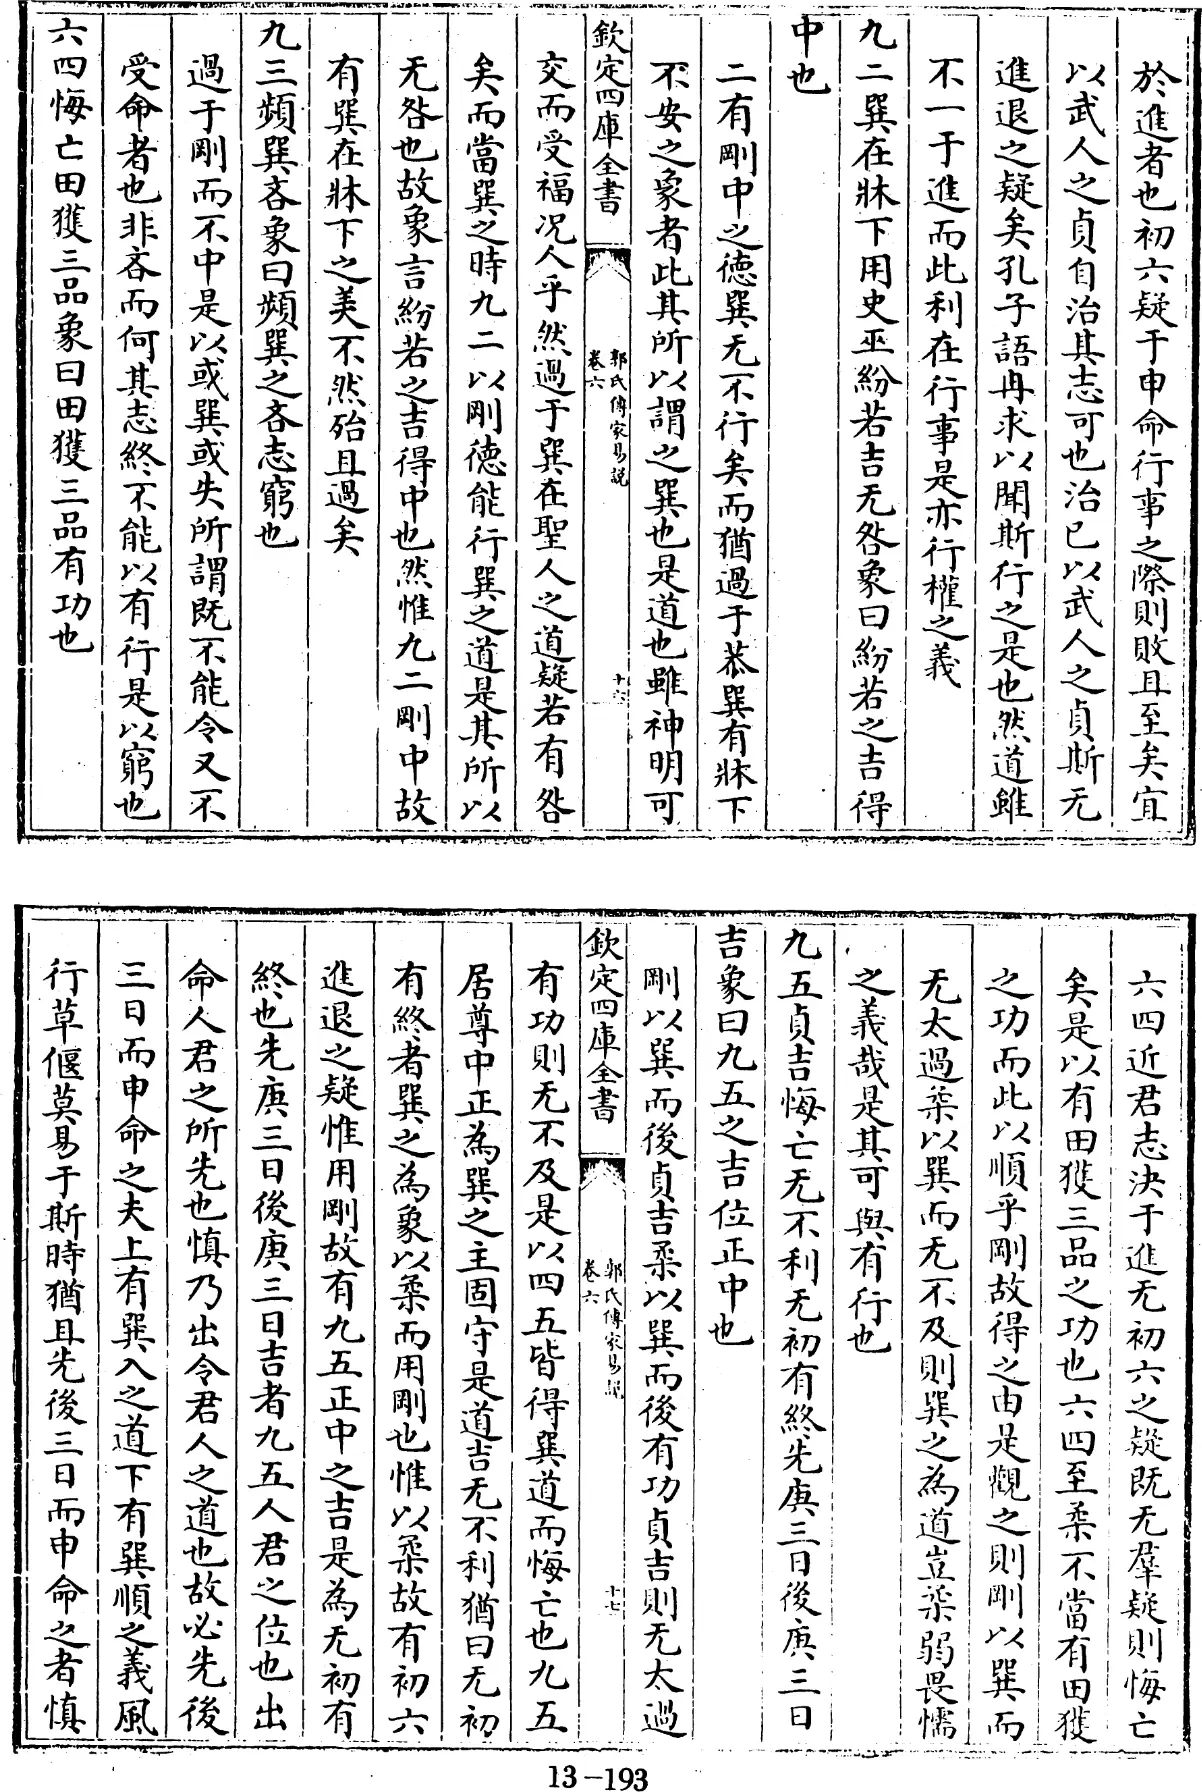 於進者也初六疑于申命行事之際則敗且至矣宜
以武人之貞自治其志可也治已以武人之貞斯无
進退之疑矣孔子語冉求以聞斯行之是也然道雖
不一于進而此利在行事是亦行權之義
九二巽在牀下用史巫紛若吉无咎象曰紛若之吉得
中也
二有剛中之德巽无不行矣而猶過于恭巽有牀下
不安之象者此其所以謂之巽也是道也雖神明可
欽定四庫全書
郭氏傳家易說
卷六
十六
交而受福况人乎然過于巽在聖人之道疑若有咎
矣而當巽之時九二以剛德能行巽之道是其所以
无咎也故象言紛若之吉得中也然惟九二剛中故
有巽在牀下之美不然殆且過矣
九三頻巽吝象曰頻巽之吝志窮也
過于剛而不中是以或巽或失所謂既不能令又不
受命者也非吝而何其志終不能以有行是以窮也
六四悔亡田獲三品象曰田獲三品有功也
六四近君志決于進无初六之疑既无羣疑則悔亡
矣是以有田獲三品之功也六四至柔不當有田獲
之功而此以順乎剛故得之由是觀之則剛以巽而
无太過柔以巽而无不及則巽之為道豈柔弱畏懦
之義哉是其可與有行也
九五貞吉悔亡无不利无初有終先庚三日後庚三日
吉象曰九五之吉位正中也
剛以巽而後貞吉柔以巽而後有功貞吉則无太過
欽定四庫全書
郭氏傳家易說
卷六
十七
有功則无不及是以四五皆得巽道而悔亡也九五
居尊中正為巽之主固守是道吉无不利猶曰无初
有終者巽之為象以柔而用剛也惟以柔故有初六
進退之疑惟用剛故有九五正中之吉是為无初有
終也先庚三日後庚三日吉者九五人君之位也出
命人君之所先也慎乃出令君人之道也故必先後
三日而申命之夫上有巽入之道下有巽順之義風
行草偃莫易于斯時猶且先後三日而申命之者慎
13-193